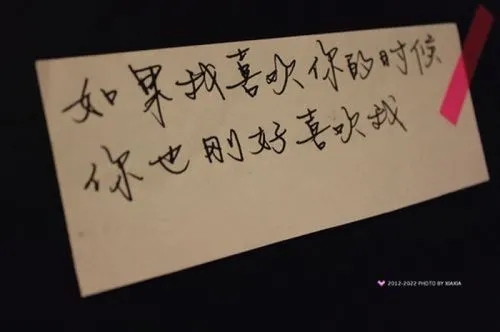 如果我喜欢你的时候
你也刚好喜欢我
2012-2022 PHOTO BY XIAXIA